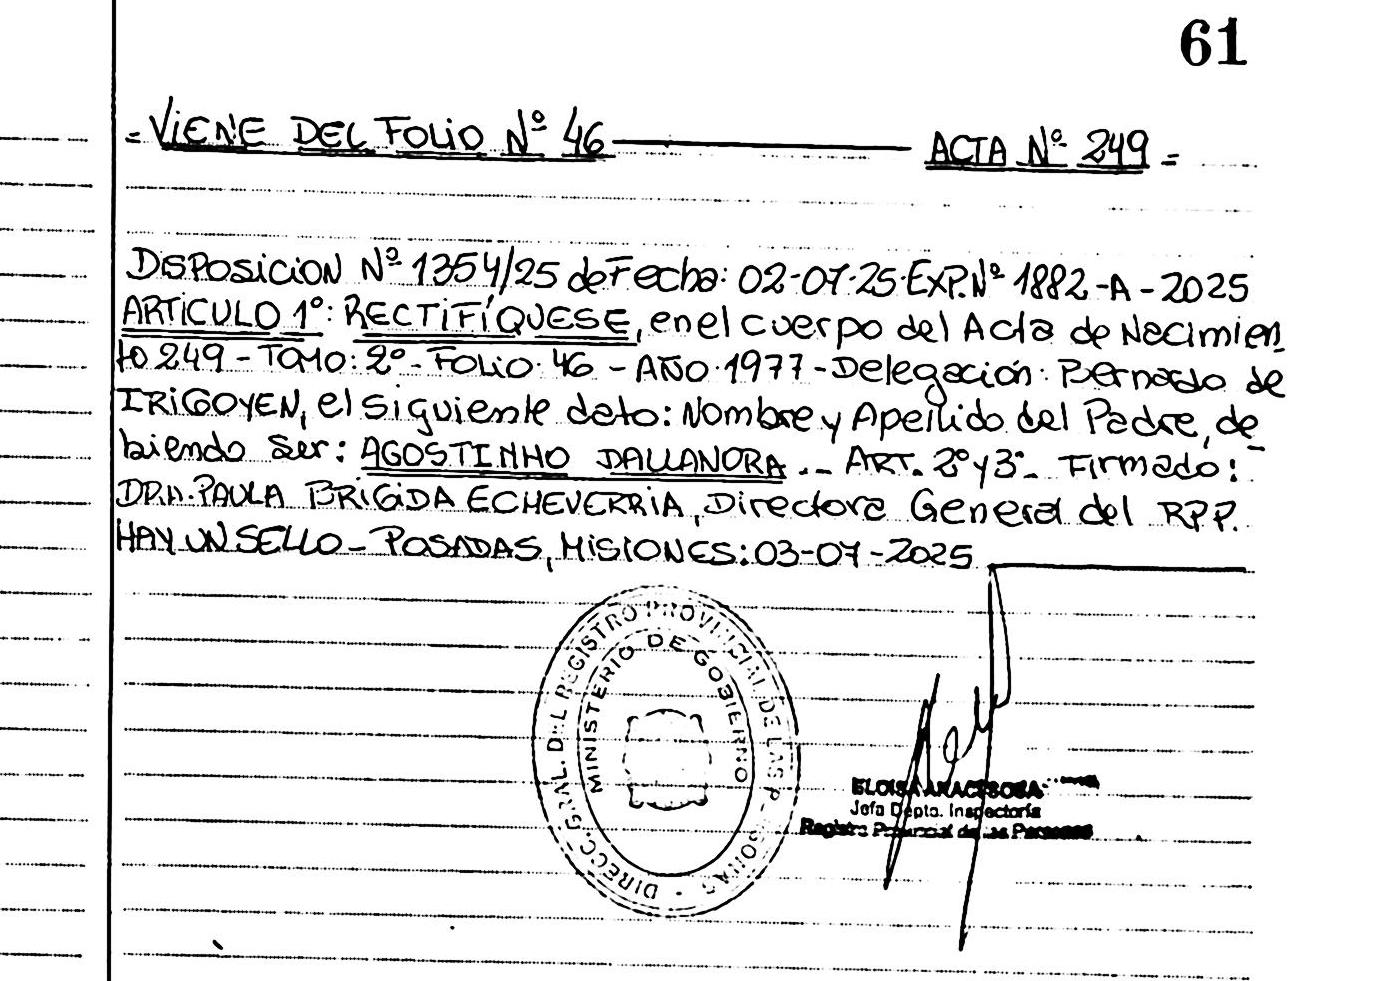 61
= VIENE DEL FOLIO Nº 46 ACTA Nº 249 =
DISPOSICION Nº 1354/25 de Fecha: 02-07-25-EXP.Nº 1882-A-2025
ARTICULO 1º: RECTIFÍQUESE, en el cuerpo del Acta de Nacimien
to 249 - TOMO: 2º - FOLIO 46 - AÑO 1977 - Delegación: Bernardo de
IRIGOYEN, el siguiente dato: Nombre y Apellido del Padre, de
biendo ser: AGOSTINHO DALLANORA.- ART. 2º y 3º- Firmado:
DRA. PAULA BRIGIDA ECHEVERRIA, Directora General del RPP.
HAY UN SELLO - POSADAS, MISIONES: 03-07-2025
DIRECC. GRAL. DEL REGISTRO PROVINCIAL DE LAS PERSONAS
MINISTERIO DE GOBIERNO
ELOISA
Jefa Dpto. Inspectoría
Registro Provincial de las Personas